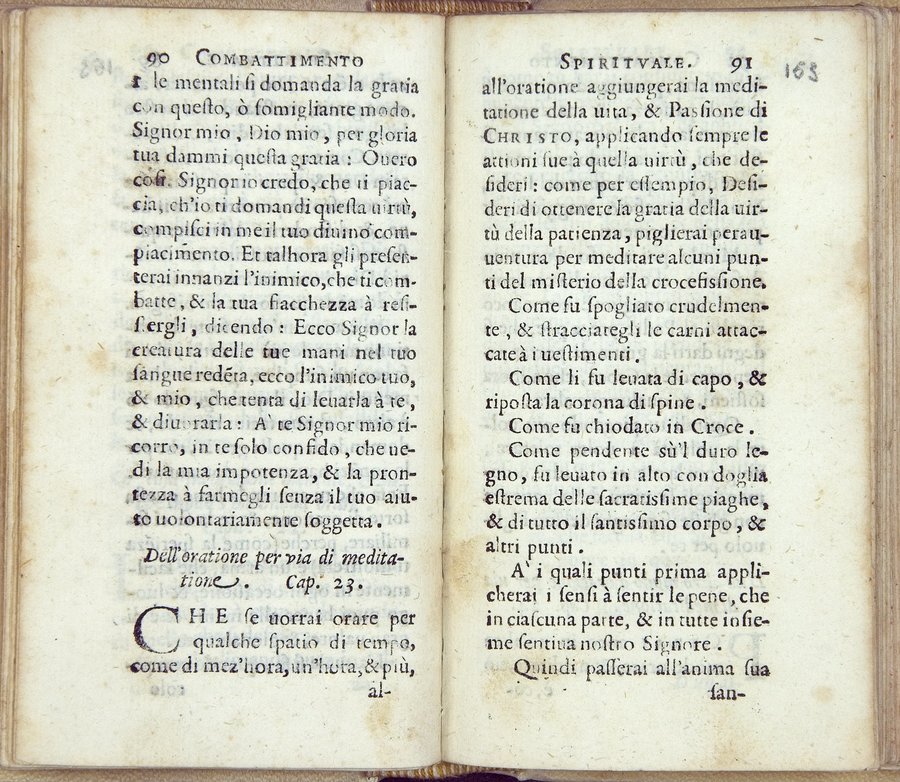 90 COMBATTIMENTO
le mentali si domanda la gratia
con questo, ò somigliante modo.
Signor mio, Dio mio, per gloria
tua dammi questa gratia: Ouero
così. Signor io credo, che ti piac-
cia, ch'io ti domandi questa uirtù,
compisci in me il tuo diuino com-
piacimento. Et talhora gli presen-
terai innanzi l'inimico, che ti com-
batte, & la tua fiacchezza à resi-
stergli, dicendo: Ecco Signor la
creatura delle tue mani nel tuo
sangue redẽta, ecco l'inimico tuo,
& mio, che tenta di leuarla à te,
& diuorarla: A te Signor mio ri-
corro, in te solo confido, che ue-
di la mia impotenza, & la pron-
tezza à farmegli senza il tuo aiu-
to uolontariamente soggetta.
Dell'oratione per via di medita-
tione. Cap. 23.
CHE se uorrai orare per
qualche spatio di tempo,
come di mez'hora, un'hora, & più,
al-
SPIRITVALE. 91
163
all'oratione aggiungerai la medi-
tatione della uita, & Passione di
CHRISTO, applicando sempre le
attioni sue à quella uirtù, che de-
sideri: come per essempio, Desi-
deri di ottenere la gratia della uir-
tù della patienza, piglierai perau-
uentura per meditare alcuni pun-
ti del misterio della crocefissione.
Come fu spogliato crudelmen-
te, & stracciategli le carni attac-
cate à i uestimenti.
Come li fu leuata di capo, &
riposta la corona di spine.
Come fu chiodato in Croce.
Come pendente sù'l duro le-
gno, fu leuato in alto con doglia
estrema delle sacratissime piaghe,
& di tutto il santissimo corpo, &
altri punti.
A' i quali punti prima appli-
cherai i sensi à sentir le pene, che
in ciascuna parte, & in tutte insie-
me sentiua nostro Signore.
Quindi passerai all'anima sua
san-